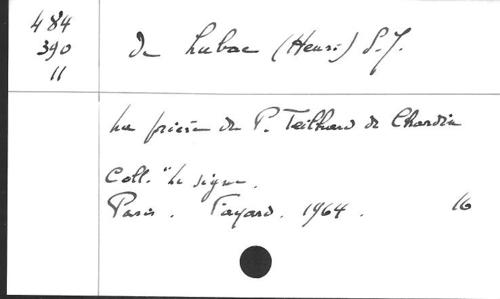 484
390
11
de Lubac (Henri) S.J.
La prière du P. Teilhard de Chardin
Coll. "Le signe.
Paris. Fayard. 1964. 16